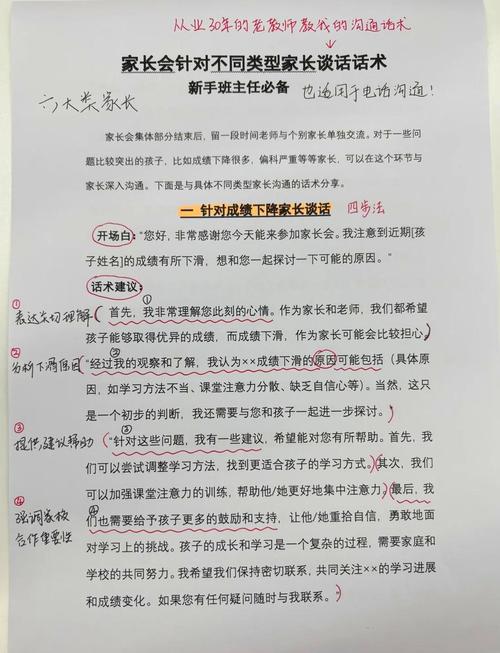 从业30年的老教师教我的沟通话术
家长会针对不同类型家长谈话话术
新手班主任必备
也适用于电话沟通！
六大类家长
家长会集体部分结束后，留一段时间老师与个别家长单独交流。对于一些
问题比较突出的孩子，比如成绩下降很多，偏科严重等等家长，可以在这个环节与
家长深入沟通。下面是与具体不同类型家长沟通的话术分享。
一 针对成绩下降家长谈话
四步法
开场白：“您好，非常感谢您今天能来参加家长会。我注意到近期[孩
子姓名]的成绩有所下滑，想和您一起探讨一下可能的原因。”
话术建议：
①
表达关切理解
①
首先，我非常理解您此刻的心情。作为家长和老师，我们都希望
孩子能够取得优异的成绩，而成绩下滑，作为家长可能会比较担心。
②
分析下滑原因
②
“经过我的观察和了解，我认为××成绩下滑的原因可能包括（具体原
因，如学习方法不当、课堂注意力分散、缺乏自信心等）。当然，这只
是一个初步的判断，我还需要与您和孩子一起进一步探讨。
③
提供建议帮助
③
“针对这些问题，我有一些建议，希望能对您有所帮助。首先，我
们可以尝试调整学习方法，找到更适合孩子的学习方式。其次，我们
可以加强课堂注意力的训练，帮助他/她更好地集中注意力。最后，我
④
强调家校
合作重要性
④
们也需要给予孩子更多的鼓励和支持，让他/她重拾自信，勇敢地面
对学习上的挑战。孩子的成长和学习是一个复杂的过程，需要家庭和
学校的共同努力。我希望我们保持密切联系，共同关注××的学习进展
和成绩变化。如果您有任何疑问随时与我联系。”